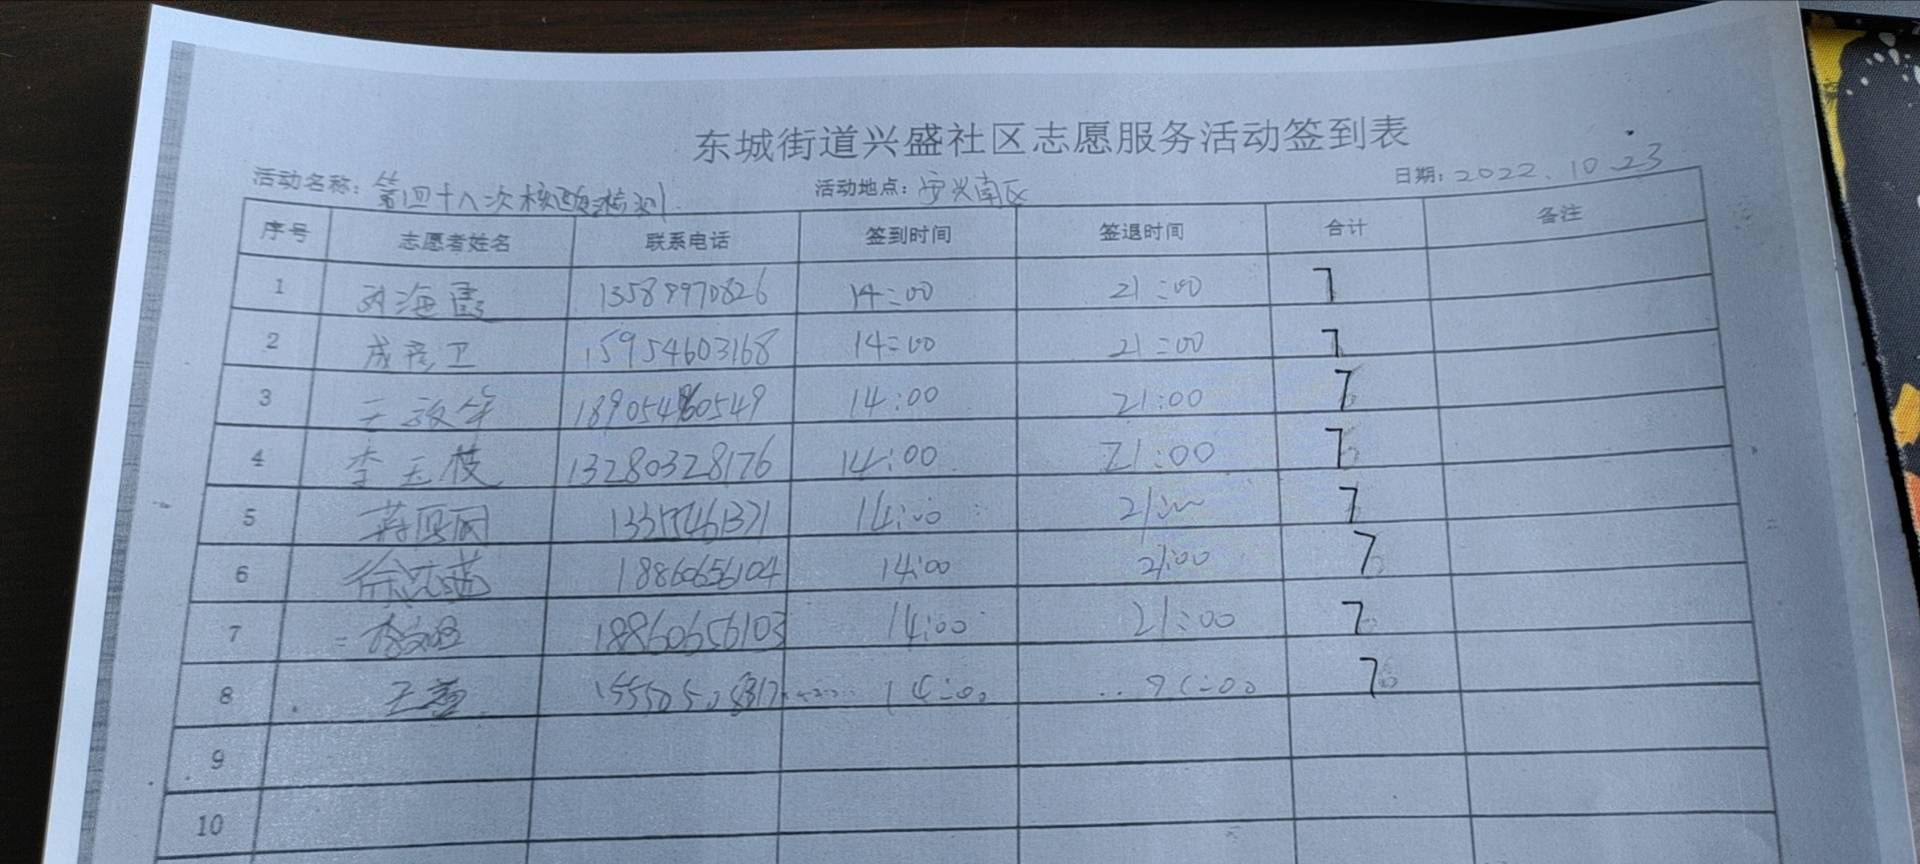 东城街道兴盛社区志愿服务活动签到表
活动名称: 第四十八次核酸检测 活动地点: 安兴南区 日期: 2022.10.23
序号 志愿者姓名 联系电话 签到时间 签退时间 合计 备注
1 海霞 13589970826 14:00 21:00 7
2 成彦卫 15954603168 14:00 21:00 7
3 王 14:00 21:00 7
4 李玉枝 13280328176 14:00 21:00 7
5 14:00 21:00 7
6 18860656104 14:00 21:00 7
7 18860656103 14:00 21:00 7
8 王 14:00 21:00 7
9
10